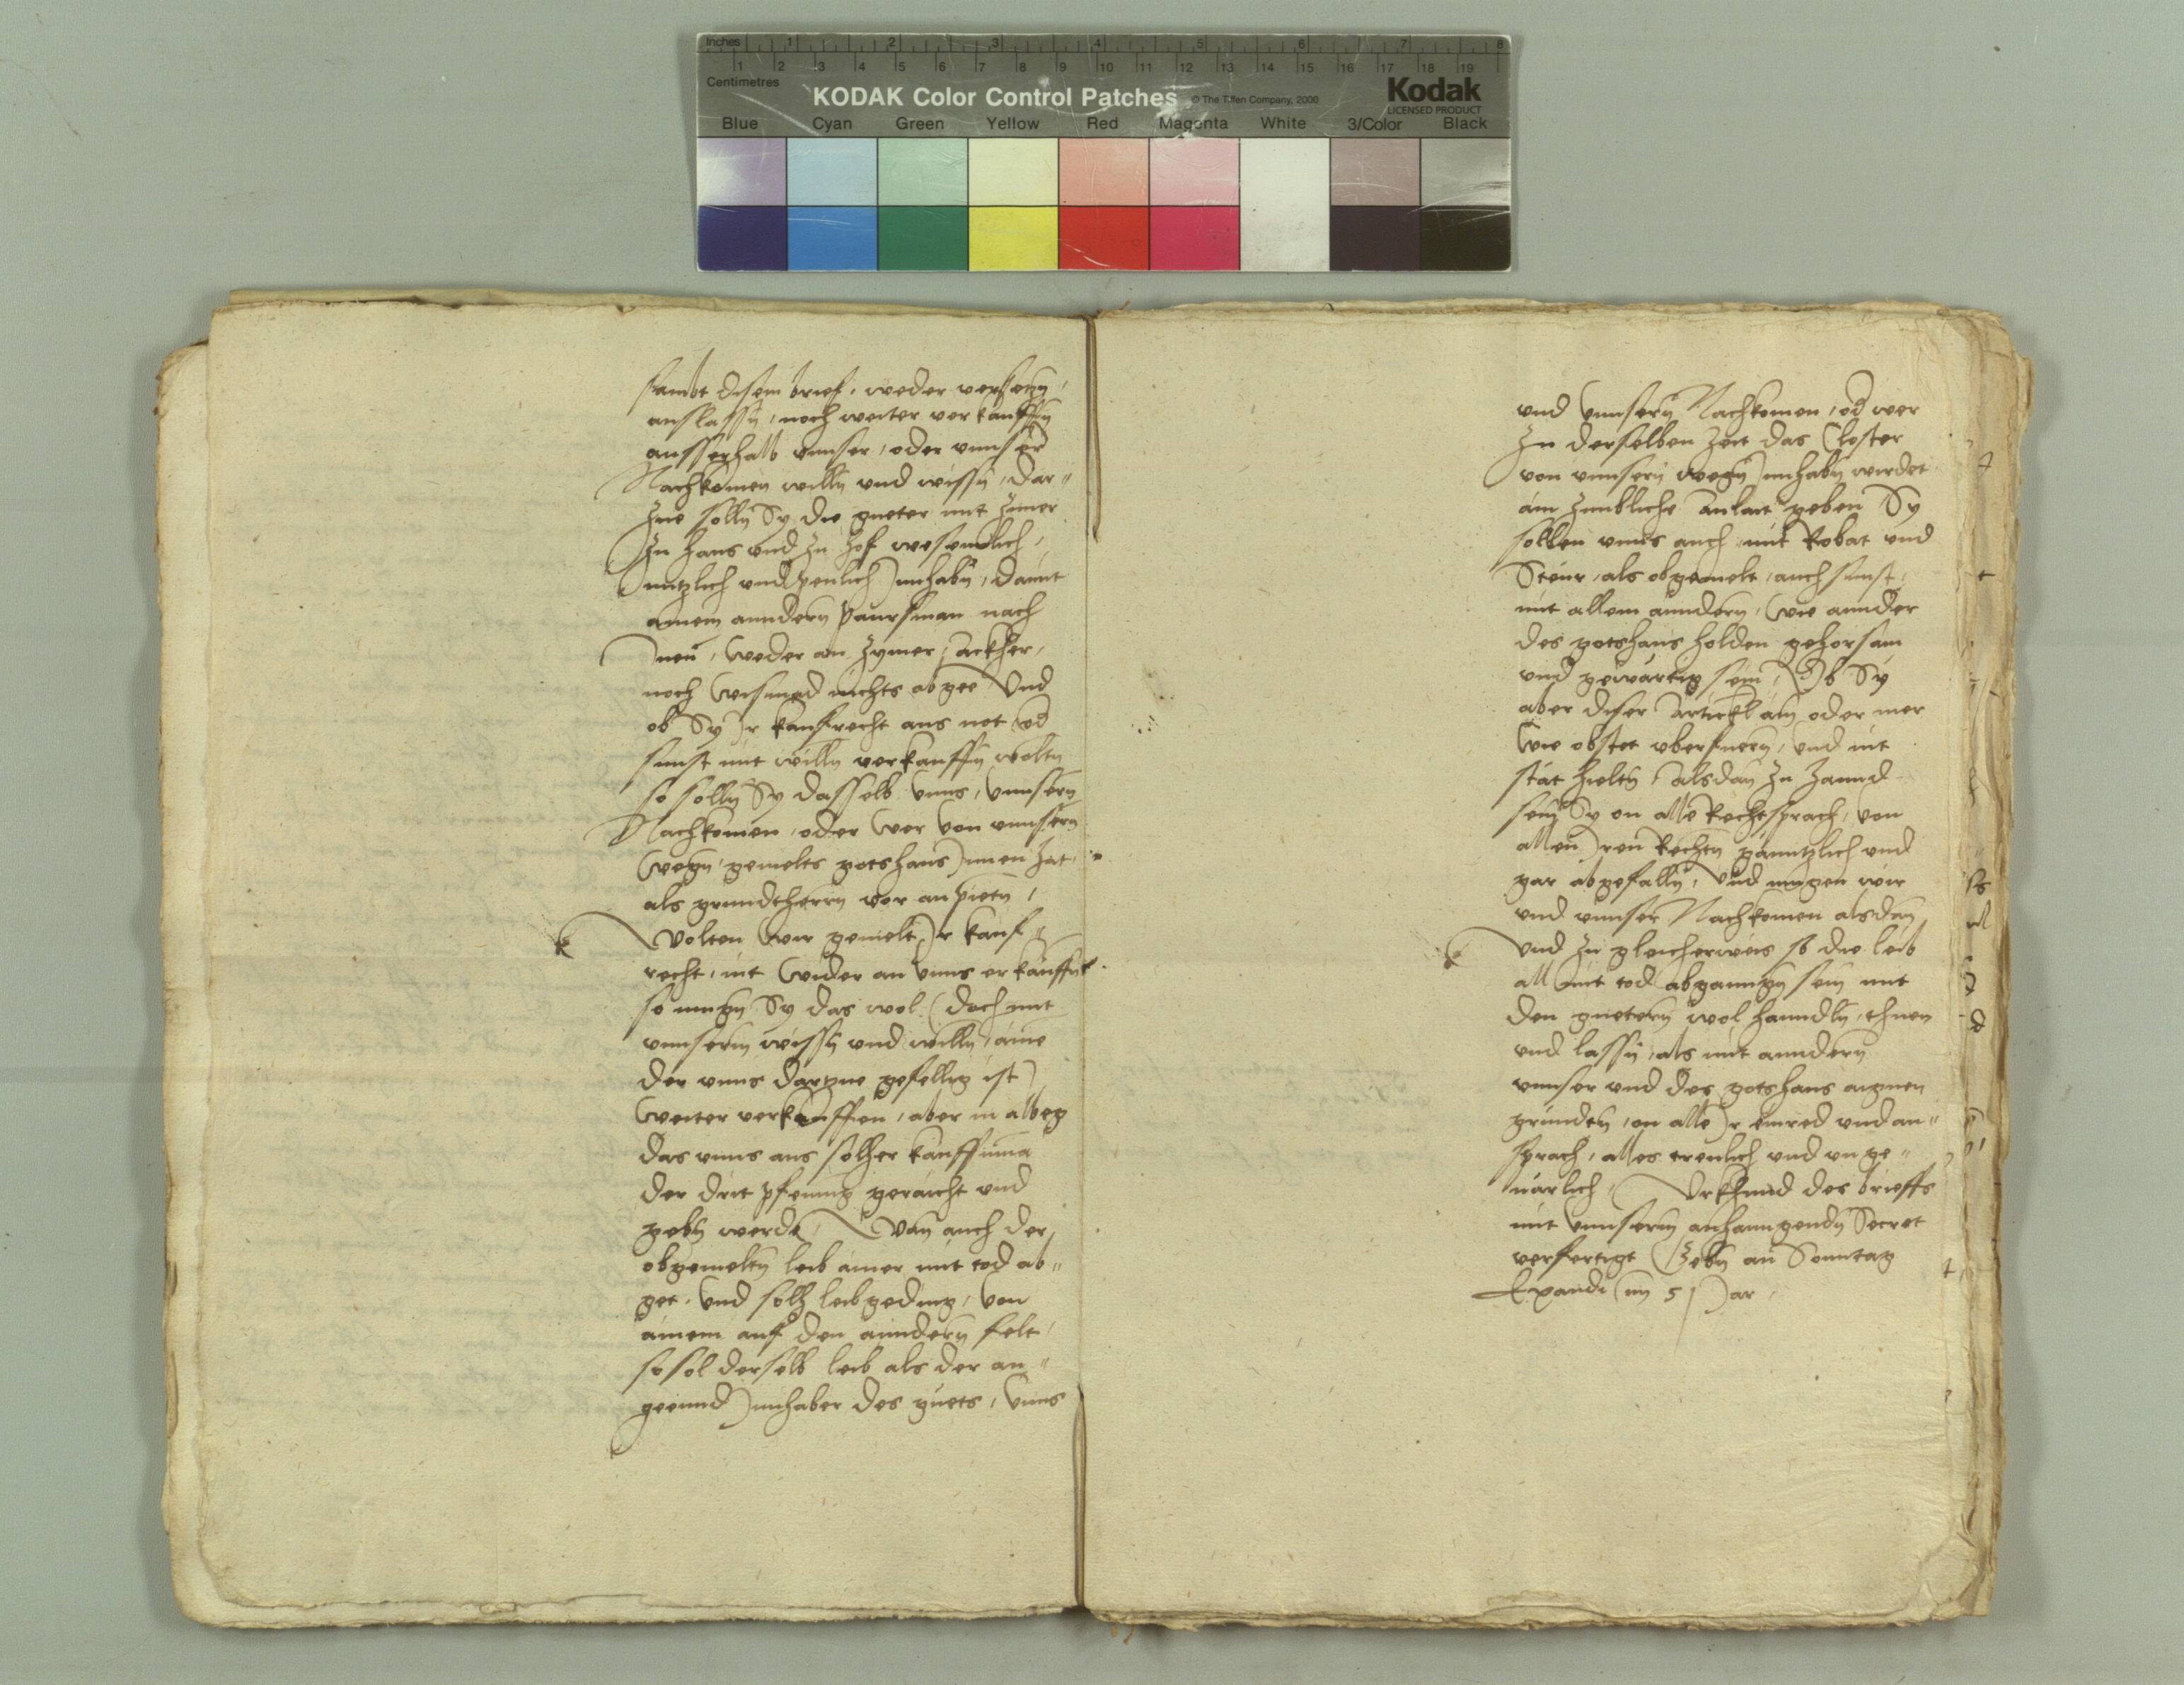 Inches 1 2 3 4 5 6 7 8
Centimetres 1 2 3 4 5 6 7 8 9 10 11 12 13 14 15 16 17 18 19
KODAK Color Control Patches © The Tiffen Company, 2000 Kodak
LICENSED PRODUCT
Blue Cyan Green Yellow Red Magenta White 3/Color Black
sambt disem brief, weder versetzn,
auslassn, noch weiter verkauffn
ausserhalb vnnser, oder vnnser
Nachkomen willn vnd wissn, dar„
zue solln Sy die gueter mit zimer
zu haus vnd zu hof wesenndlich,
nutzlich vnd peulich Innhabn, damit
ainem anndern paursman nach
Inen, weder an zymer, ackher,
noch wismad nichts abgee, Vnd
ob Sy Ir kaufrecht aus not od
sunst mit willn verkauffn woltn
so solln Sy dasselb vnns, vnnsern
Nachkomen, oder wer von vnnsern
wegn, gemelts gotshaus Innen hat,
als grundtherrn vor anpietn,
Wolten wir gemelt Ir kauf„
recht, nit wider an vnns erkauffn
so mugn Sy das wol (doch mit
vnnserm wissn vnd willn, aine
der vnns dartzue gefellig ist)
weiter verkauffen, aber in albeg
das vnns aus solher kauffsuma
der drit pfening geraicht vnd
gebn werde, Wan auch der
obgemeltn leib ainer mit tod ab„
get, vnd solh leibgeding, von
ainem auf den anndern felt,
so sol derselb leib als der an„
geennd Innhaber des guets, vnns
vnd vnnsern Nachkomen, od wer
zu derselben zeit das Closter
von vnnsern wegn Innhabn wirdet
ain zimbliche anlait geben Sy
sollen vnns auch mit Robat vnd
Steur, als obgemelt, auch sunst,
mit allem anndern, wie annder
des gotshaus holden gehorsam
vnd gewartig sein, Ob Sy
aber diser artickl ain oder mer
wie obstet vberfuern, vnd nit
stat hieltn, alsdan zu hannd
sein Sy on alle Rechtsprach, von
allen Iren Rechtn ganntzlich vnd
gar abgefalln, Vnd mugen wir
vnd vnnser Nachkomen alsdan,
Vnd zu gleicherweis so die leib
all mit tod abganngn sein mit
den guetern wol hanndln, thuen
vnd lassn, als mit anndern
vnnser vnd des gotshaus aignen
grunden, on alle Ir einred vnd an„
sprach, alles treulich vnd vnge„
uarlich, Vrkhund des brieffs
mit vnnserm anhanngendn Secret
verfertigt Gebn an Sonntag
Exaudi im 51 Jar,